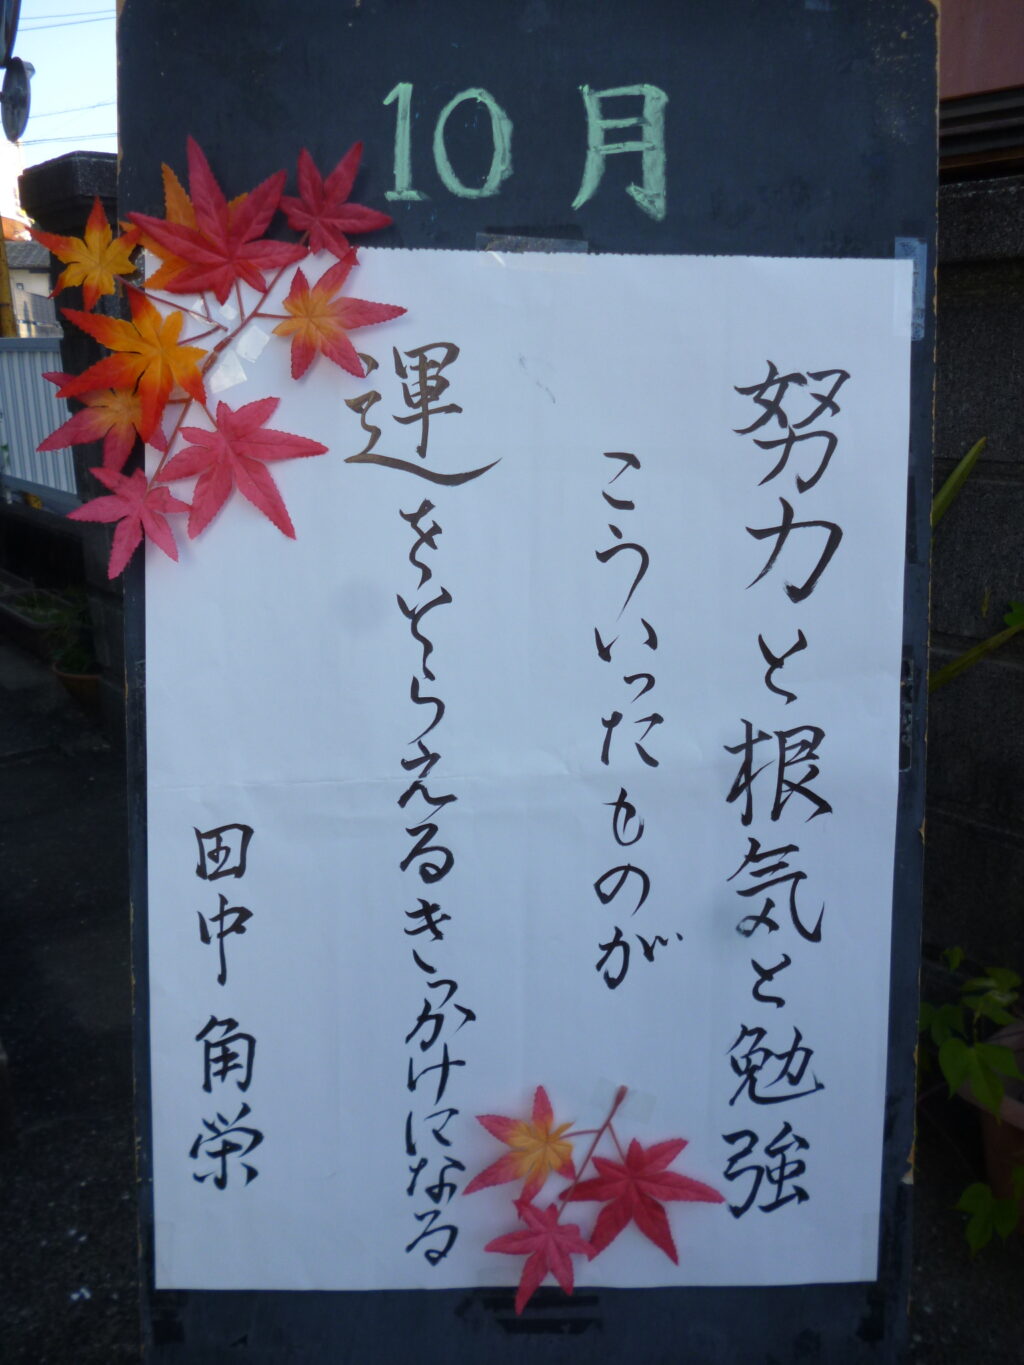 10月
努力と根気と勉強
こういったものが
運をとらえるきっかけになる
田中角栄